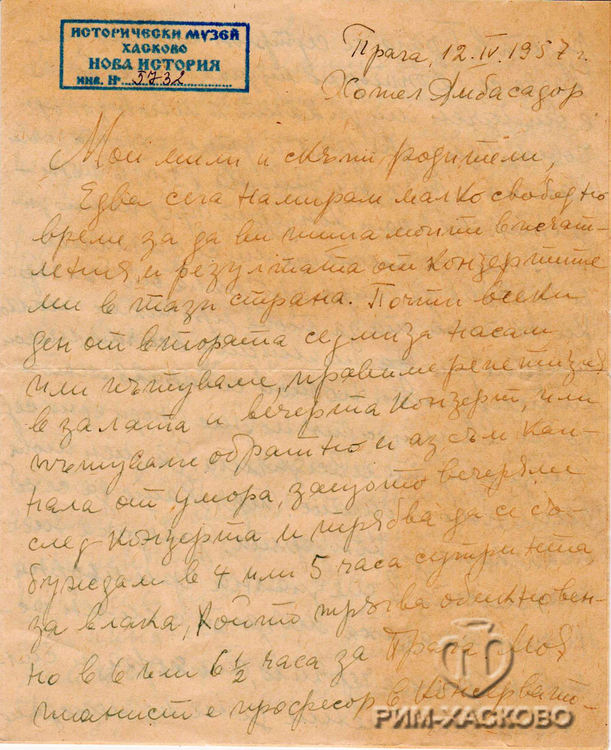 ИСТОРИЧЕСКИ МУЗЕЙ
ХАСКОВО
НОВА ИСТОРИЯ
ИНВ. № 5732
Прага, 12.IV.1957 г.
Хотел Амбасадор
Мои мили и скъпи родители,
Едва сега намирам малко свободно
време, за да ви пиша моите впечат-
ления и резултата от концертите
ми в тази страна. Почти всеки
ден от втората седмица насам
или пътуваме, правиме репетиция
в залата и вечерта концерт, или
пътували обратно и аз съм кап-
нала от умора, защото вечеряли
след концерта и трябва да се съ-
буждам в 4 или 5 часа сутринта
за влака, който тръгва обикновен-
но в 6 или 6 1/2 часа за Прага. Моя
пианист е професор в Консервато-
РИМ-ХАСКОВО